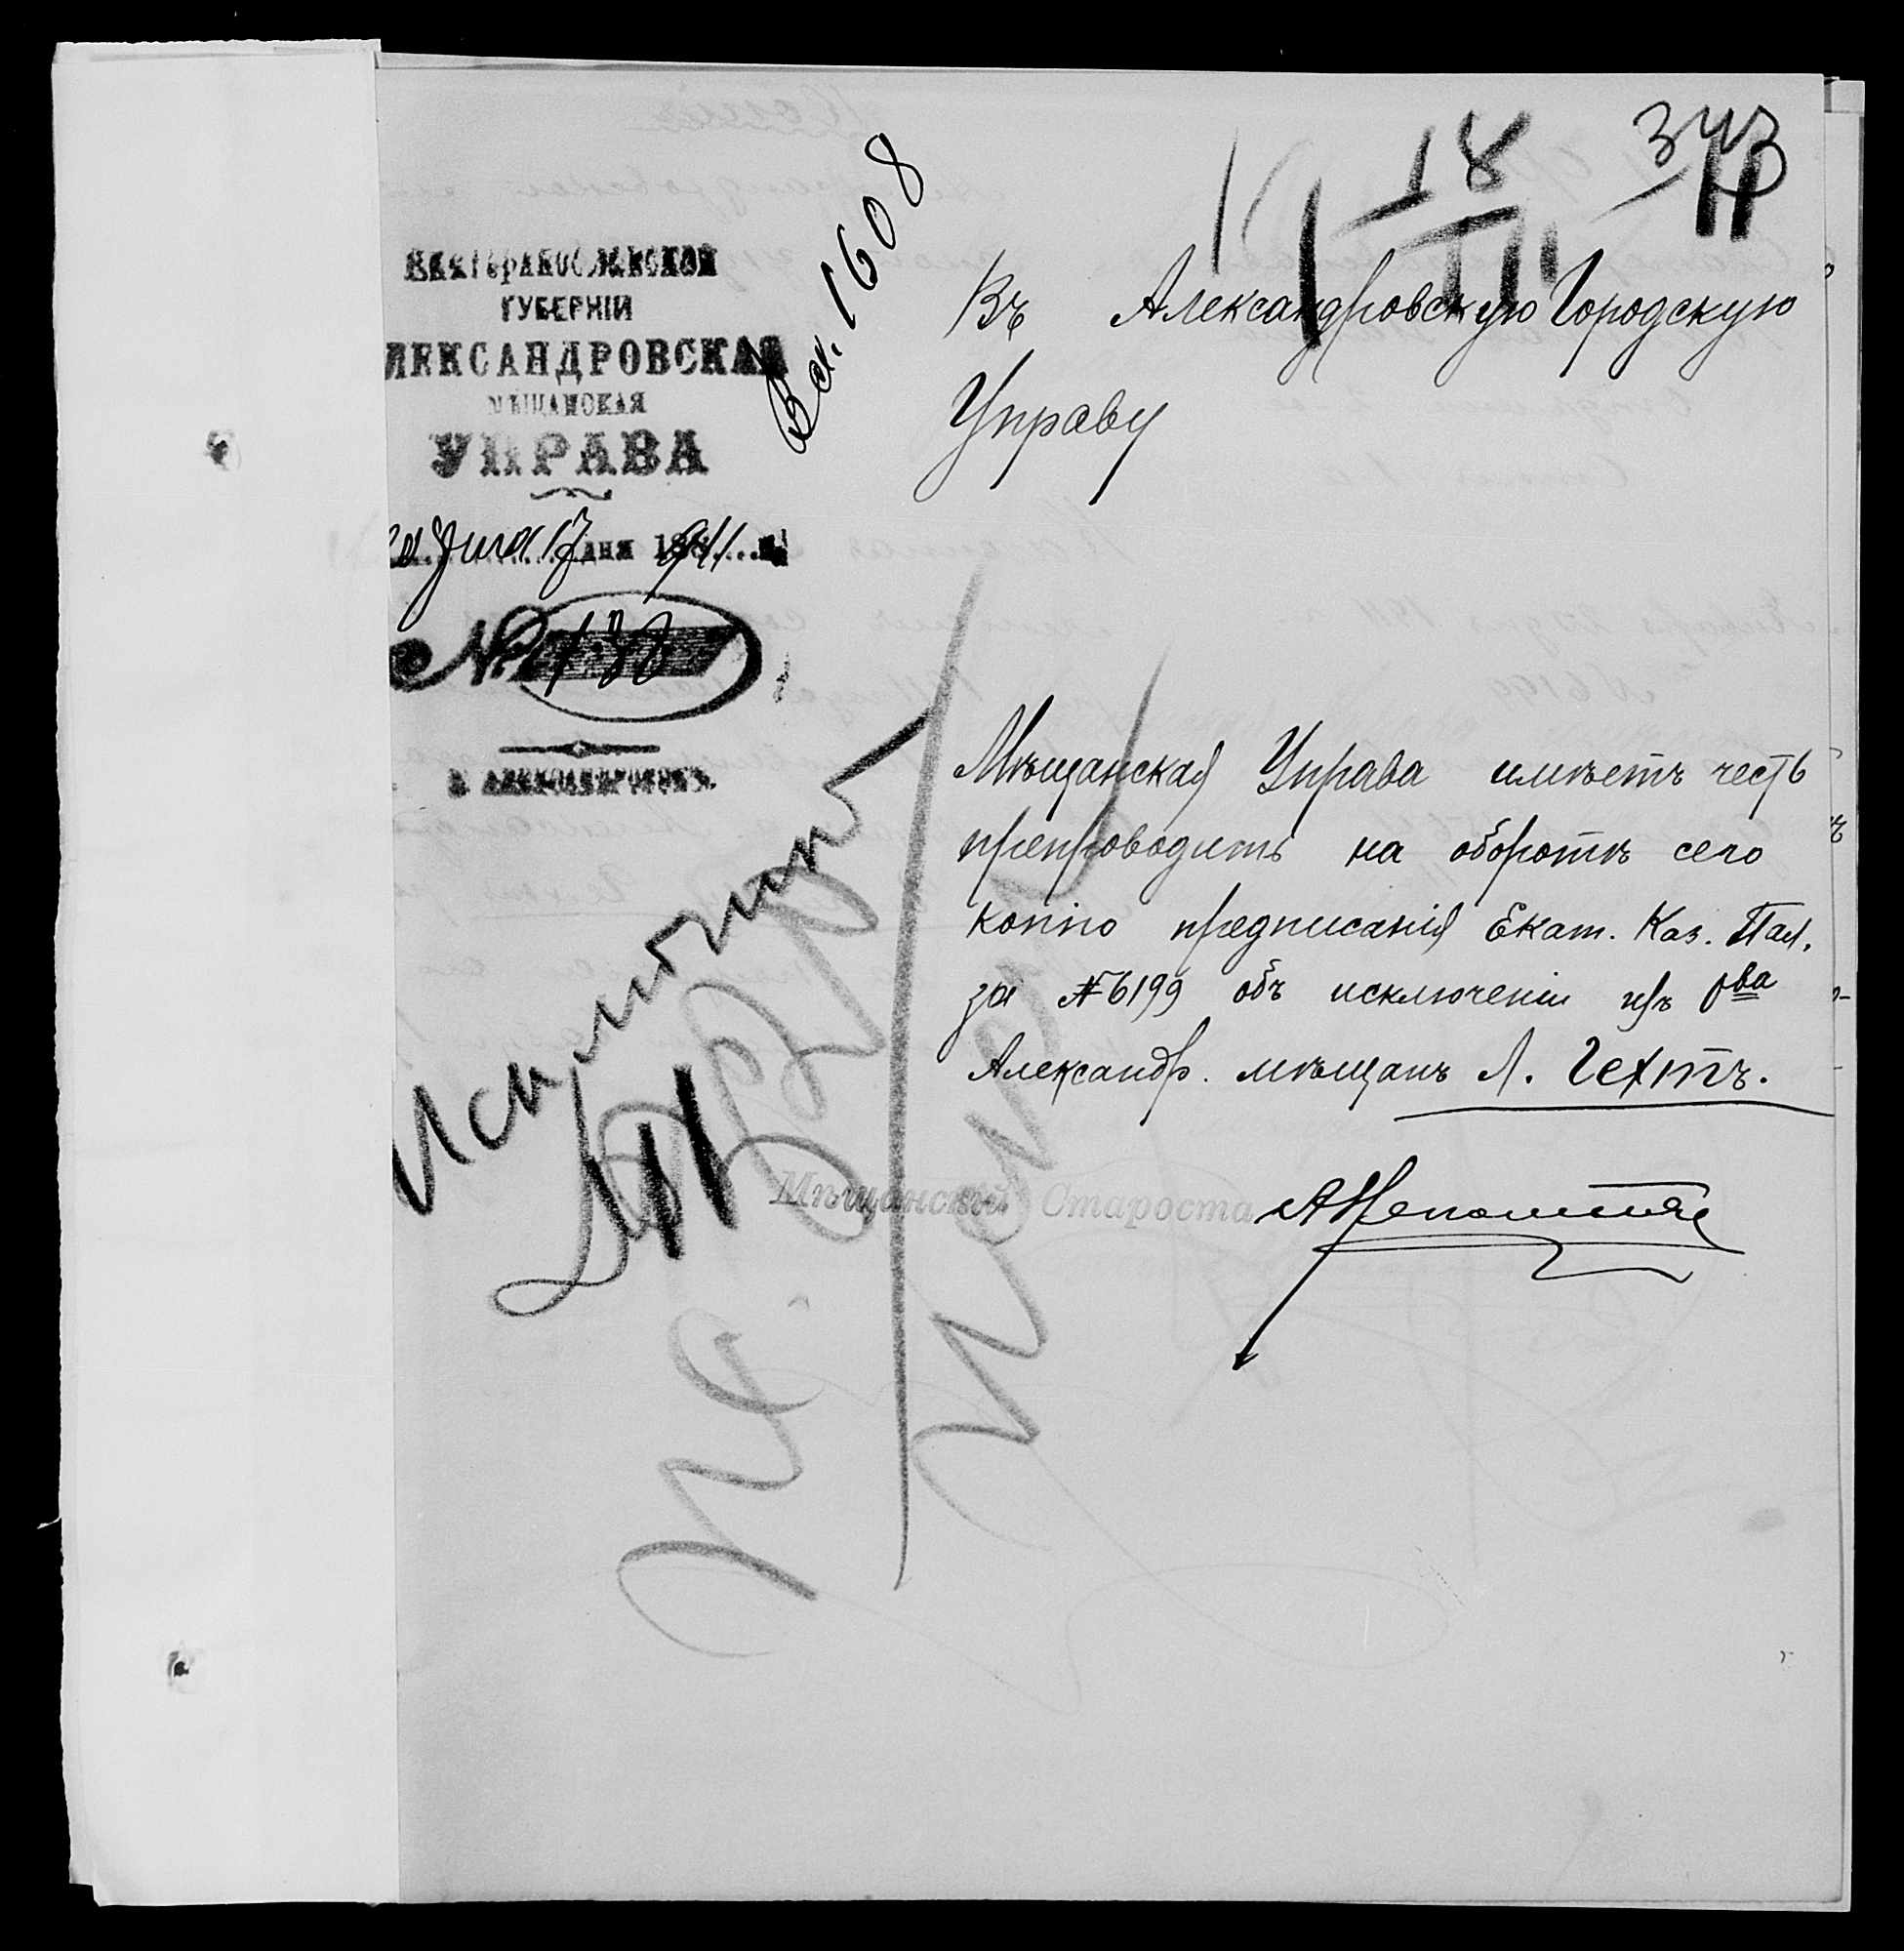 343
18
III
Вх. 1608
ЕКАТЕРИНОСЛАВСКОЙ
ГУБЕРНІИ
ЛЕКСАНДРОВСКАЯ
МѢЩАНСКАЯ
УПРАВА
17 дня 1911
№ 138
Г. АЛЕКСАНДРОВСКЪ.
Въ Александровскую Городскую
Управу
Мѣщанская Управа имѣетъ честь
препроводить на оборотѣ сего
копію предписанія Екат. Каз. Пал.
за № 6199 объ исключеніи изъ о-ва
Александр. мѣщанъ Л. Гехтъ.
Мѣщанскій Староста
Исполнить